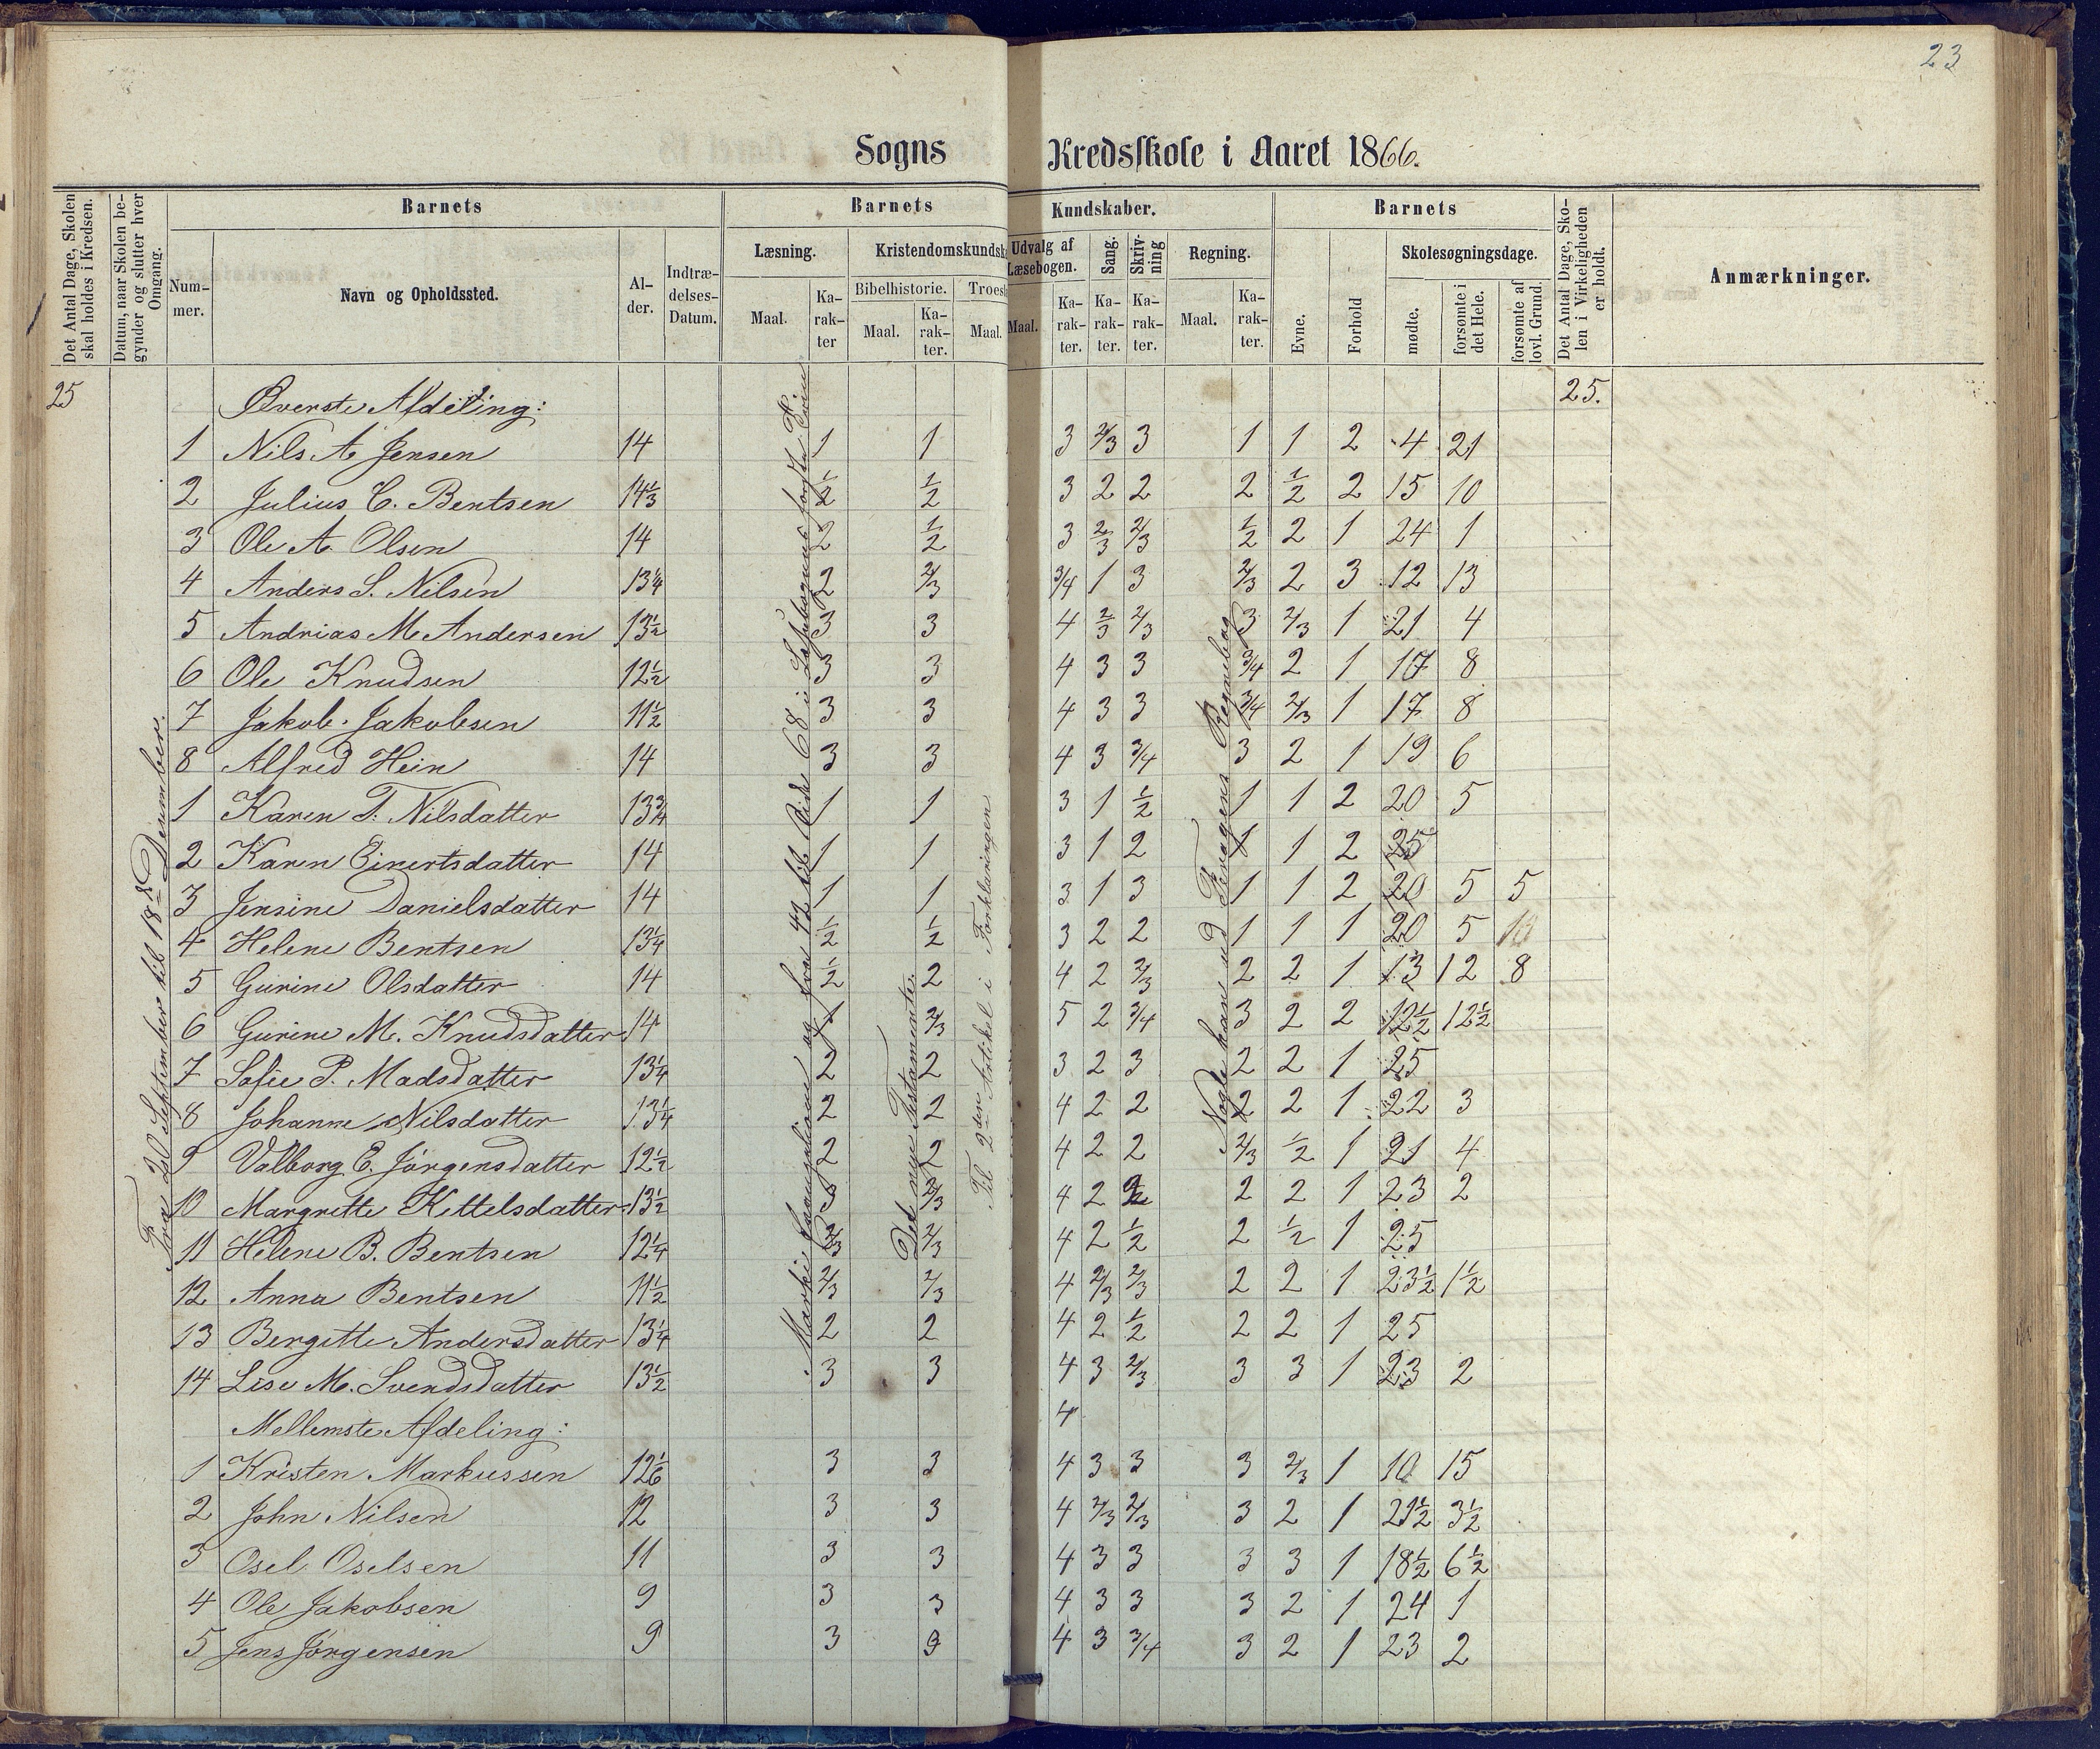 23
Sogns Kredsskole i Aaret 1866.
Det Antal Dage, Skolen skal holdes i Kredsen.
Datum, naar Skolen begynder og slutter hver Omgang.
Barnets
Nummer.
Navn og Opholdssted.
Alder.
Indtrædelses-Datum.
Barnets
Kundskaber.
Læsning.
Maal.
Karakter
Kristendomskundsk
Bibelhistorie.
Maal.
Karakter.
Troes
Maal.
Udvalg af Læsebogen.
Maal.
Karakter.
Sang.
Karakter.
Skrivning
Karakter.
Regning.
Maal.
Karakter.
Barnets
Evne.
Forhold
Skolesøgningsdage.
mødte.
forsømte i det Hele.
forsømte af lovl. Grund.
Det Antal Dage, Skolen i Virkeligheden er holdt.
Anmærkninger.
25 Øverste Afdeling: 25.
1 Nils A Jensen 14 1 1 3 2/3 3 1 1 2 4 21
2 Julius C. Bentsen 14 1/3 1/2 1/2 3 2 2 2 1/2 2 15 10
3 Ole A. Olsen 14 2 1/2 3 2/3 2/3 1/2 2 1 24 1
4 Anders S. Nilsen 13 1/4 2 2/3 3/4 1 3 2/3 2 3 12 13
5 Andrias M Andersen 13 1/2 3 3 4 2/3 2/3 3 2/3 1 21 4
6 Ole Knudsen 12 1/2 3 3 4 3 3 3/4 2 1 17 8
7 Jakob Jakobsen 11 1/2 3 3 4 3 3 3/4 2/3 1 17 8
8 Alfred Hein 14 3 3 4 3 3/4 3 2 1 19 6
1 Karen T. Nilsdatter 13 3/4 1 1 3 1 1/2 1 1 2 20 5
2 Karen Einertsdatter 14 1 1 3 1 2 1 1 2 25
3 Jensine Danielsdatter 14 1 1 3 1 3 1 1 2 20 5 5
4 Helene Bentsen 13 1/4 1/2 1/2 3 2 2 1 1 1 20 5 10
5 Gurine Olsdatter 14 1/2 2 4 2 2/3 2 2 1 13 12 8
6 Gurine M. Knudsdatter 14 2/3 5 2 3/4 3 2 2 12 1/2 12 1/2
7 Sofie P. Madsdatter 13 1/4 2 2 3 2 3 2 2 1 25
8 Johanne Nilsdatter 13 1/4 2 2 4 2 2 2 2 1 22 3
9 Valborg E. Jörgensdatter 12 1/2 2 2 4 2 2 2/3 1/2 1 21 4
10 Margrette Kittelsdatter 13 1/2 3 2/3 4 2 2 2 1 23 2
11 Helene B. Bentsen 12 1/4 2/3 2/3 4 2 1/2 2 1/2 1 25
12 Anna Bentsen 11 1/2 2/3 2/3 4 2/3 2/3 2 2 1 23 1/2 1 1/2
13 Bergitte Andersdatter 13 1/4 2 2 4 2 1/2 2 2 1 25
14 Lise M. Svendsdatter 13 1/2 3 3 4 3 2/3 3 3 1 23 2
Mellemste Afdeling: 4
1 Kristen Markussen 12 1/6 3 3 4 3 3 3 2/3 1 10 15
2 John Nilsen 12 3 3 4 2/3 2/3 3 2 1 21 1/2 3 1/2
3 Osel Oselsen 11 3 3 4 3 3 3 3 1 18 1/2 6 1/2
4 Ole Jakobsen 9 3 3 4 3 3 3 2 1 24 1
5 Jens Jörgensen 9 3 3 4 3 3/4 3 2 1 23 2
Fra 20 September til 18de December.
Marki Evangelium og fra 42 til Side 68 i Læsebogens første Trin
Det nye Testamente.
Til 2den Artikel i Forklaringen
Nogle kan ud Regnebog